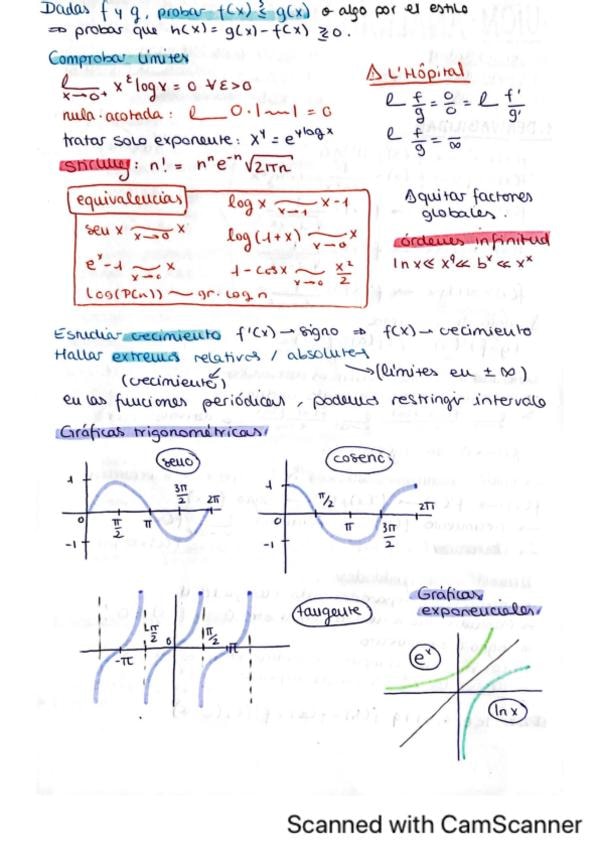 Dadas f y g, probar f(x) ≷ g(x) o algo por el estilo
⇒ probar que h(x) = g(x) - f(x) ≷ 0.
Comprobar límites
l x→0+ x^ε log x = 0 ∀ε>0
nula·acotada: l 0·|~| = 0
tratar solo exponente: x^y = e^(y log x)
Stirling: n! = n^n e^-n √2πn
⚠ L'Hôpital
l f/g = 0/0 = l f'/g'
l f/g = ∞/∞
equivalencias
log x ~ x→1 x-1
sen x ~ x→0 x
log(1+x) ~ x→0 x
e^x - 1 ~ x→0 x
1 - cos x ~ x→0 x²/2
log(P(n)) ~ gr. log n
⚠ quitar factores
globales.
órdenes infinitud
ln x << x^a << b^x << x^x
Estudiar crecimiento f'(x) → signo ⇒ f(x) → crecimiento
Hallar extremos relativos / absolutos
(crecimiento) → (límites en ± ∞)
en las funciones periódicas, podemos restringir intervalo
Gráficas trigonométricas:
seno
1
0
π/2
π
3π/2
2π
-1
coseno
1
0
π/2
π
3π/2
2π
-1
tangente
-π
-π/2
0
π/2
π
Gráficas
exponenciales
e^x
ln x
Scanned with CamScanner